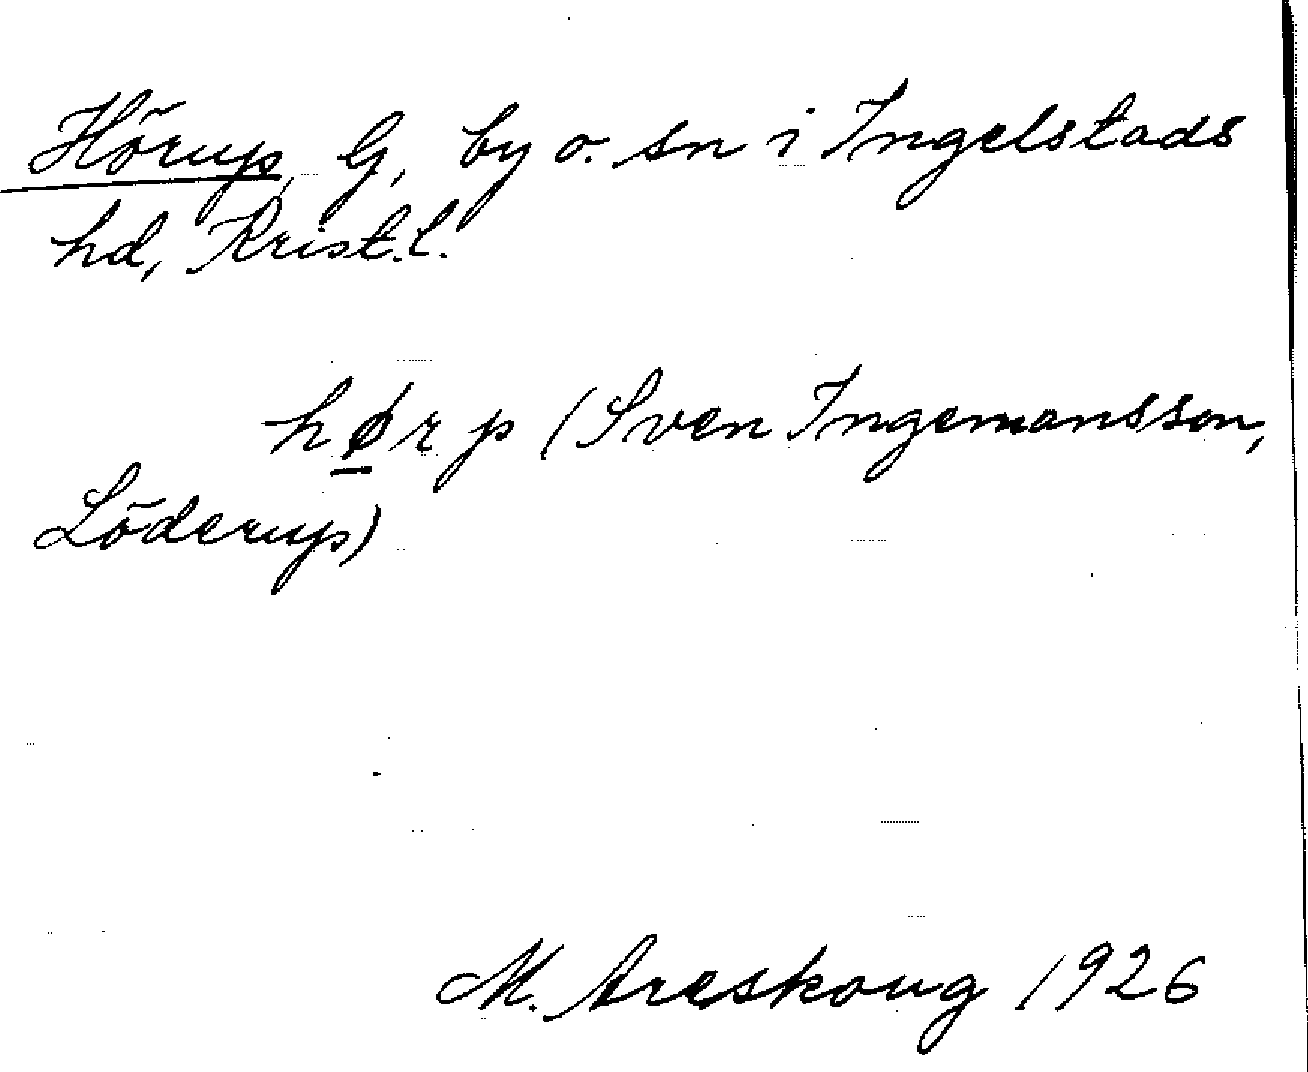 Hörup, G, by o. sn i Ingelstads
hd, Krist.l.
hørp (Sven Ingemansson,
Löderup)
M. Areskoug 1926